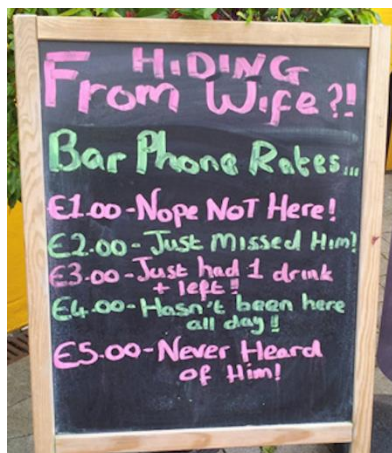 HiDiNG
From Wife?!
Bar Phone Rates...
€1.00-Nope NOT Here!
€2.00-Just Missed Him!
€3.00-Just had 1 drink
+ left!!
€4.00-Hasn't been here
all day!!
€5.00-Never Heard
of Him!